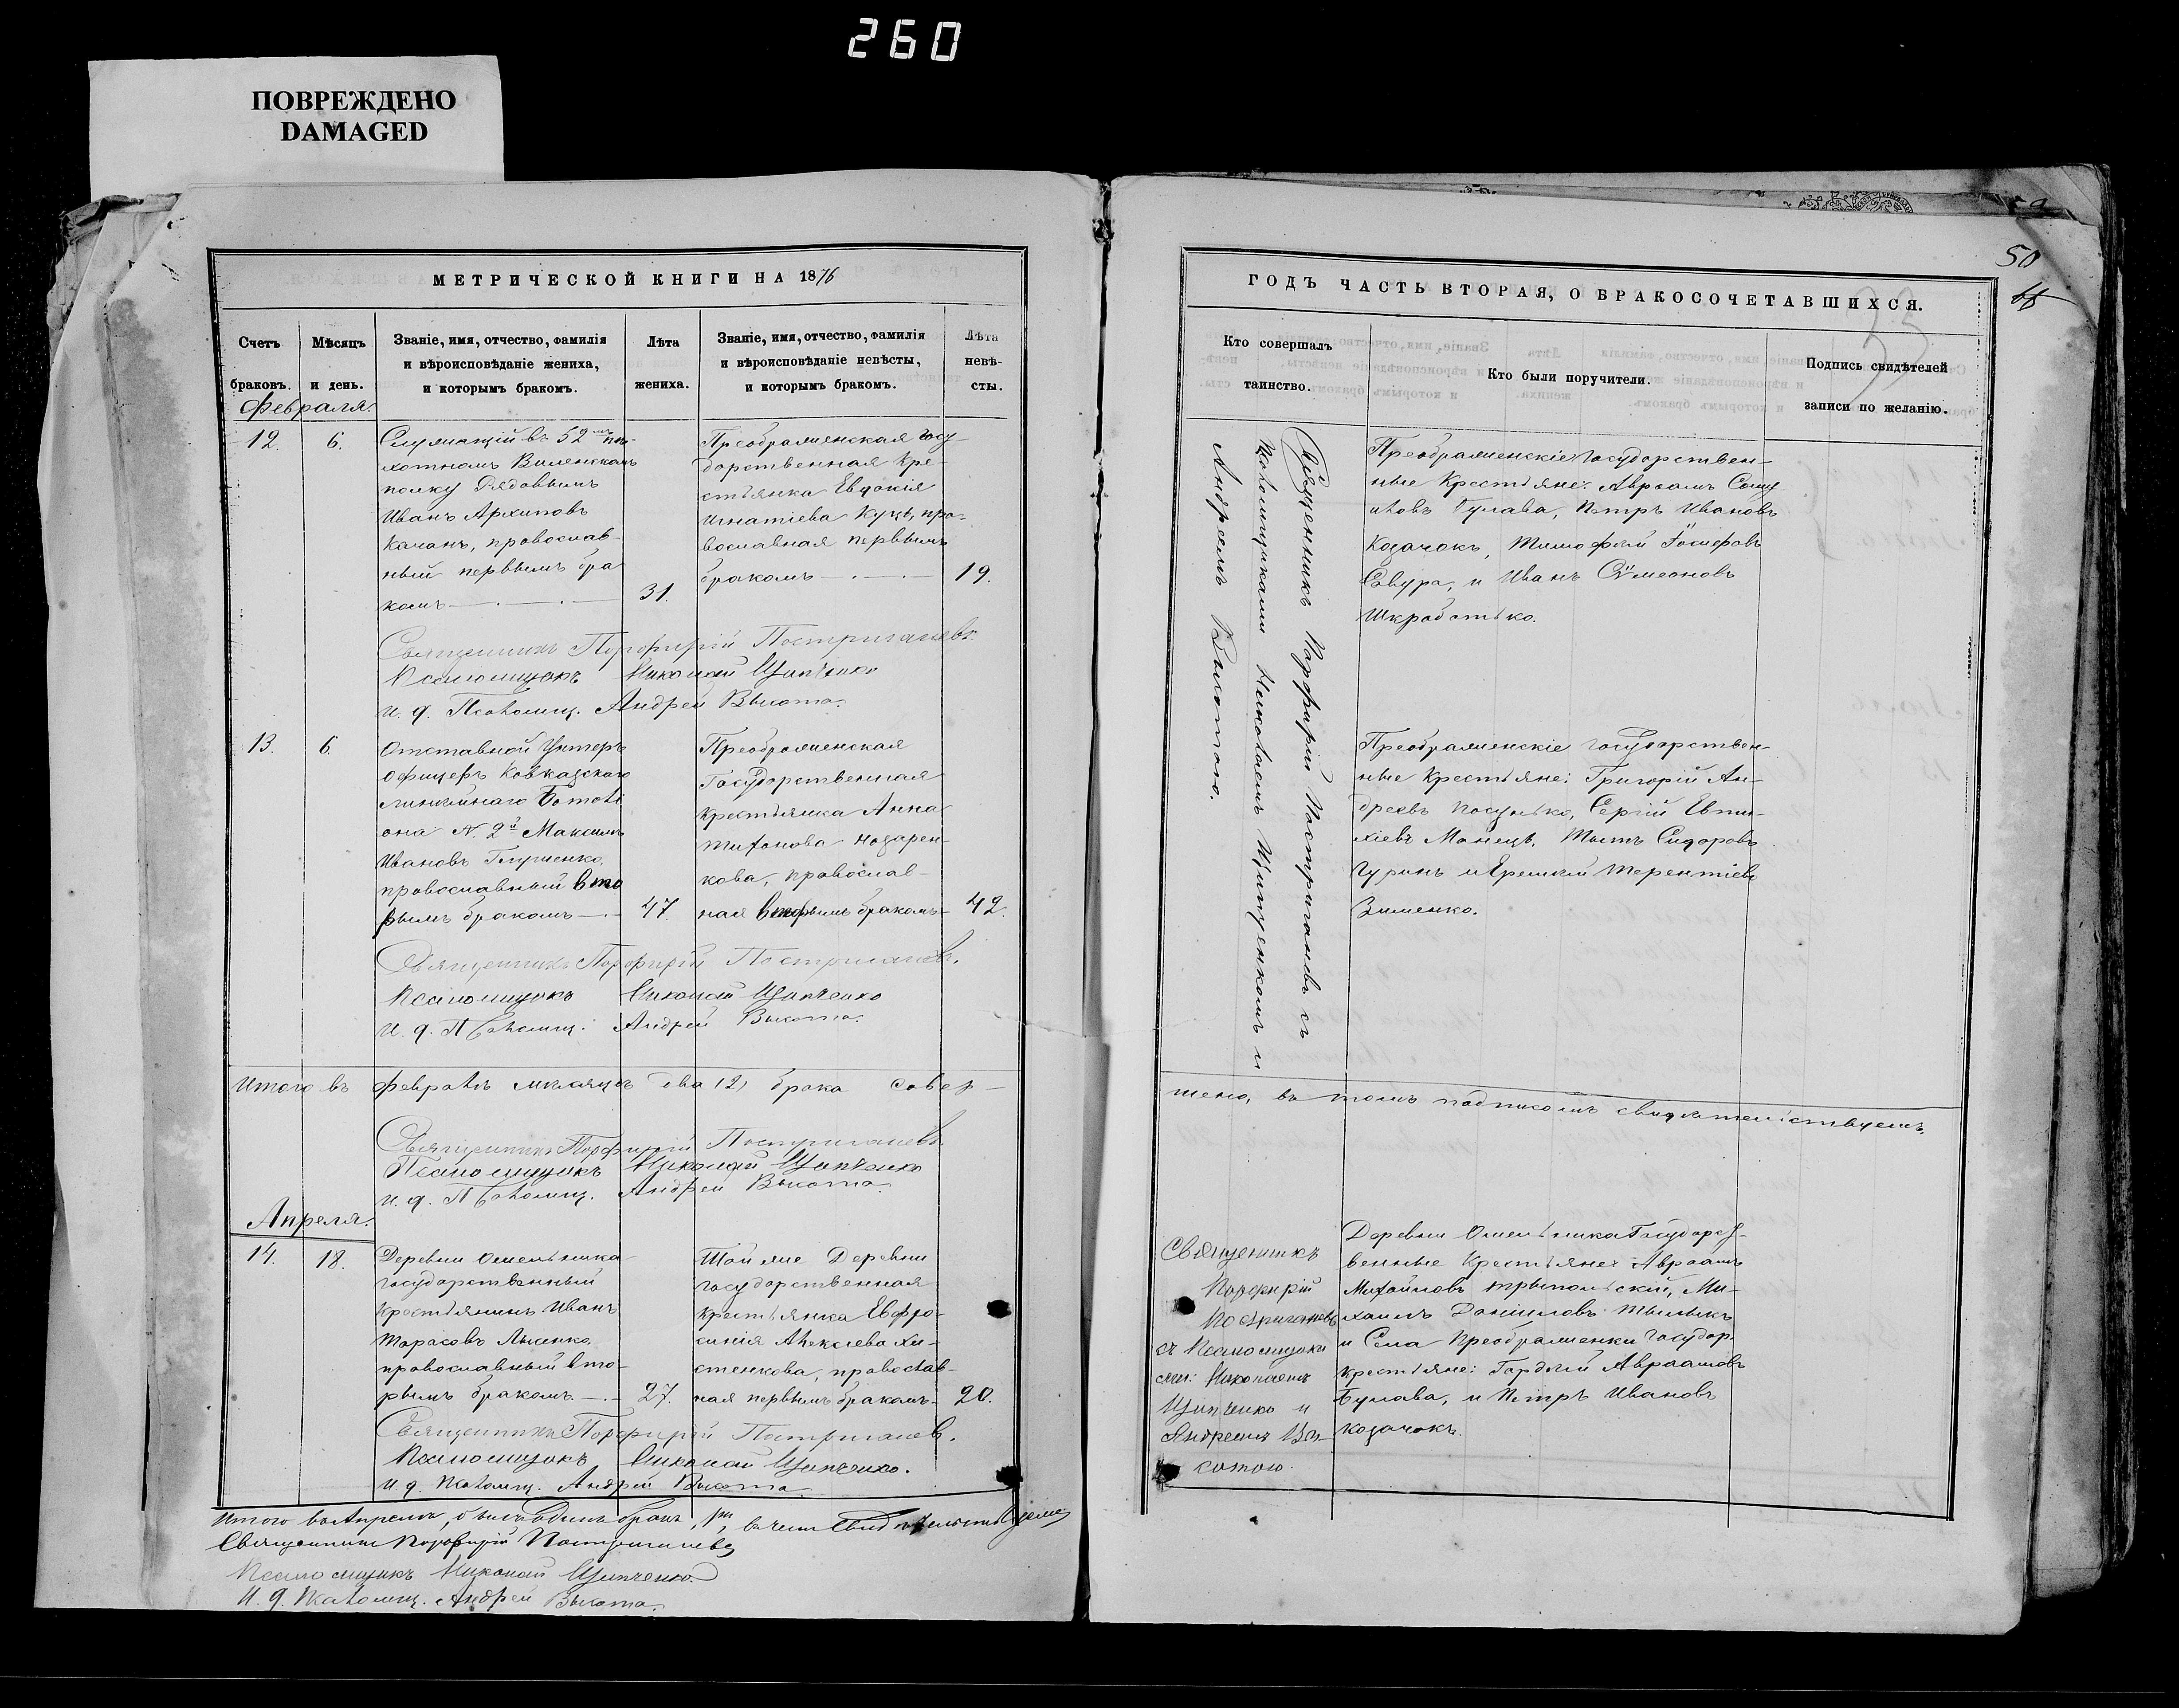 260
ПОВРЕЖДЕНО
DAMAGED
МЕТРИЧЕСКОЙ КНИГИ НА 1876
Счетъ браковъ.
Мѣсяцъ и день.
Званіе, имя, отчество, фамилія
и вѣроисповѣданіе жениха,
и которымъ бракомъ.
Лѣта жениха.
Званіе, имя, отчество, фамилія
и вѣроисповѣданіе невѣсты,
и которымъ бракомъ.
Лѣта невѣ-
сты.
Февраля.
12.
6.
Служащій въ 52мъ пѣ-
хотномъ Виленскомъ
полку Рядовымъ
Иванъ Архиповъ
Качанъ, православ-
ный первымъ бра
комъ
31.
Преображенская госу-
дарственная кре-
стьянка Евдокія
Игнатіева Куцъ, пра-
вославная первымъ
бракомъ
19.
Священникъ Порфирій Постригачевъ.
Псаломщикъ Николай Щипченко
И. д. Псаломщ. Андрей Высота.
13.
6.
Отставной Унтеръ
офицеръ Кавказскаго
линейнаго Батальі
она N. 2й Максимъ
Ивановъ Глушенко,
православный вто
рымъ бракомъ
47.
Преображенская
Государственная
крестьянка Анна
Тихонова Назарен-
кова, православ-
ная вторымъ бракомъ
42.
Священникъ Порфирій Постригачевъ.
Псаломщикъ Николай Щипченко
И. д. Псаломщ. Андрей Высота.
Итого въ февралѣ мѣсяцѣ два (2) брака совер-
Священникъ Порфирій Постригачевъ.
Псаломщикъ Николай Щипченко
И. д. Псаломщ. Андрей Высота.
Апреля.
14.
18.
Деревни Омельника
государственный
крестьянинъ Иванъ
Тарасовъ Лысенко,
православный вто-
рымъ бракомъ.
27.
Той же Деревни
государственная
крестьянка Евфро-
синія Алексіева Хи-
стенкова, православ-
ная первымъ бракомъ
20.
Священникъ Порфирій Постригачевъ.
Псаломщикъ Николай Щипченко.
И. д. Псаломщ. Андрей Высота.
Итого въ Апрелѣ, былъ одинъ бракъ, въ чемъ свидѣтельствуемъ
Священникъ Порфирій Постригачевъ
Псаломщикъ Николай Щипченко
И. д. Псаломщ. Андрей Высота.
50
ГОДЪ ЧАСТЬ ВТОРАЯ, О БРАКОСОЧЕТАВШИХСЯ.
Кто совершалъ
таинство.
Кто были поручители.
Подпись свидѣтелей
записи по желанію.
Священникъ Порфирій Постригачевъ съ
Псаломщиками Николаемъ Щипченкомъ и
Андреемъ Высотою.
Преображенскіе Государствен-
ные Крестьяне: Авраамъ Саму
иловъ Булава, Петръ Ивановъ
Козачокъ, Тимофей Іосифовъ
Савура, и Иванъ Сѵмеоновъ
Шкработько.
Преображенскіе Государствен-
ные Крестьяне: Григорій Ан-
дреевъ Носунько, Сергій Евти-
хіевъ Манецъ, Титъ Сидоровъ
Гуринъ и Еремѣй Терентіевъ
Зименко.
шено, въ томъ подписомъ свидѣтельствуемъ.
Священникъ
Порфирій
Постригачевъ
съ Псаломщика
ми: Николаемъ
Щипченко и
Андреемъ Вы-
сотою.
Деревни Омельника Государст-
венные Крестьяне: Авраамъ
Михайловъ Трыпольскій, Ми-
хаилъ Даниловъ Тылыкъ
и Села Преображенки Государ.
крестьяне: Гордѣй Авраамовъ
Булава, и Петръ Ивановъ
Козачокъ.